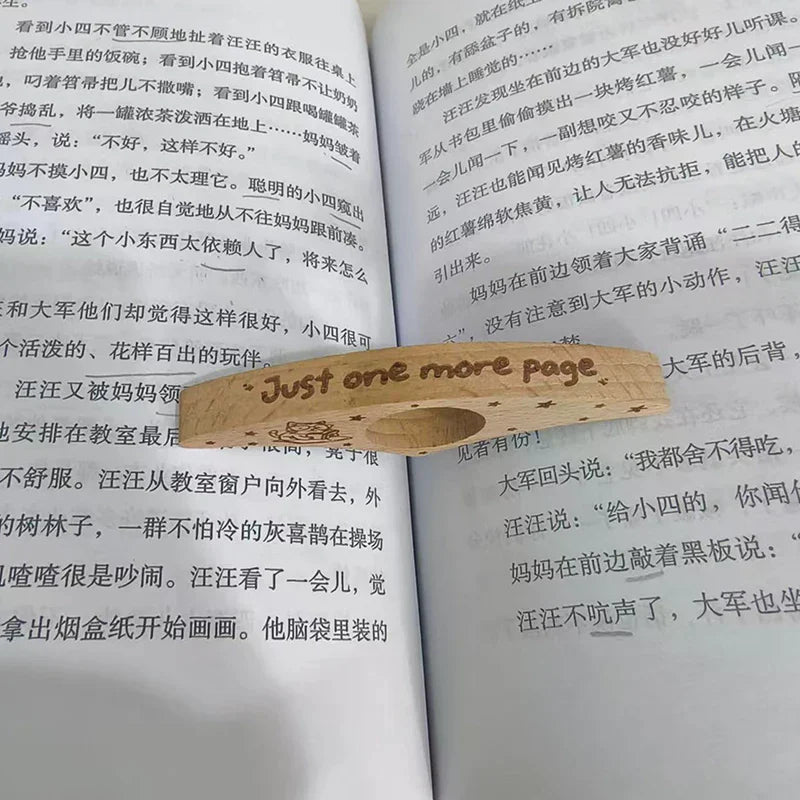 看到小四不管不顾地扯着汪汪的衣服往桌上
抢他手里的饭碗；看到小四抱着笤帚不让奶奶
，叼着笤帚把儿不撒嘴；看到小四跟喝罐罐茶
爷捣乱，将一罐浓茶泼洒在地上……妈妈皱着
摇头，说：“不好，这样不好。”
妈妈不摸小四，也不太理它。聪明的小四窥出
“不喜欢”，也很自觉地从不往妈妈跟前凑。
妈说：“这个小东西太依赖人了，将来怎么
和大军他们却觉得这样很好，小四很可
个活泼的、花样百出的玩伴。
汪汪又被妈妈领
地安排在教室最后
不舒服。汪汪从教室窗户向外看去，外
的树林子，一群不怕冷的灰喜鹊在操场
喳喳很是吵闹。汪汪看了一会儿，觉
拿出烟盒纸开始画画。他脑袋里装的
Just one more page
全是小四，就在纸上
儿的，有舔盆子的，有拆院离
晓在墙上睡觉的……
汪汪发现坐在前边的大军也没好好儿听课。
军从书包里偷偷摸出一块烤红薯，一会儿闻一
一会儿闻一下，一副想咬又不忍咬的样子。
远，汪汪也能闻见烤红薯的香味儿，在火塘
的红薯绵软焦黄，让人无法抗拒，能把人的
引出来。
妈妈在前边领着大家背诵“二二得
，没有注意到大军的小动作，汪汪
大军的后背，
见者有份！
大军回头说：“我都舍不得吃，
汪汪说：“给小四的，你闻
妈妈在前边敲着黑板说：“
汪汪不吭声了，大军也坐